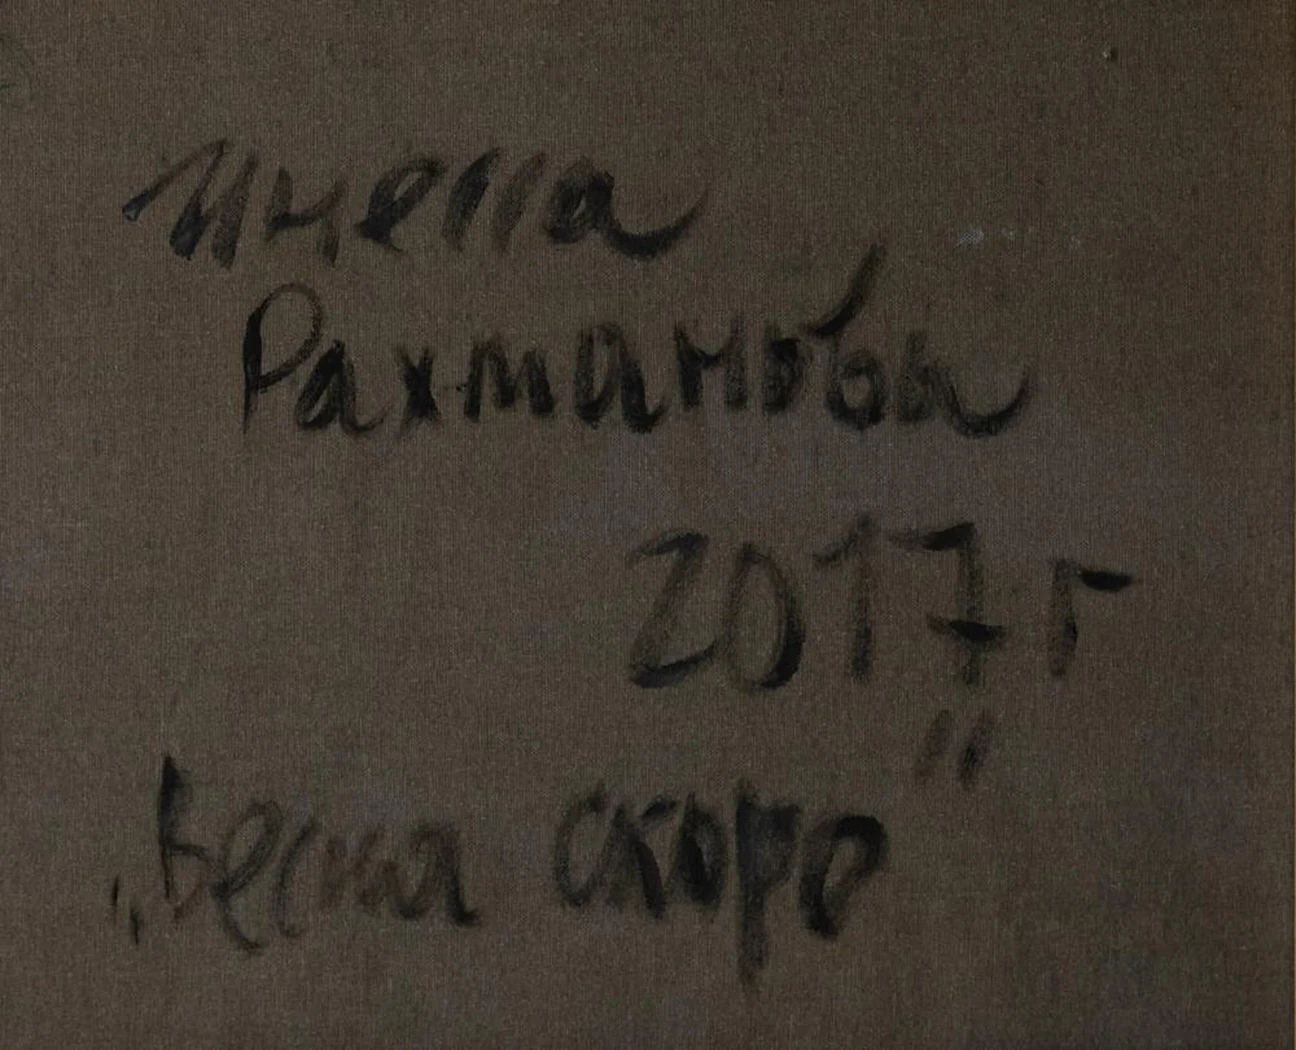 Инесса
Рахманова
2017г
„Весна скоро"